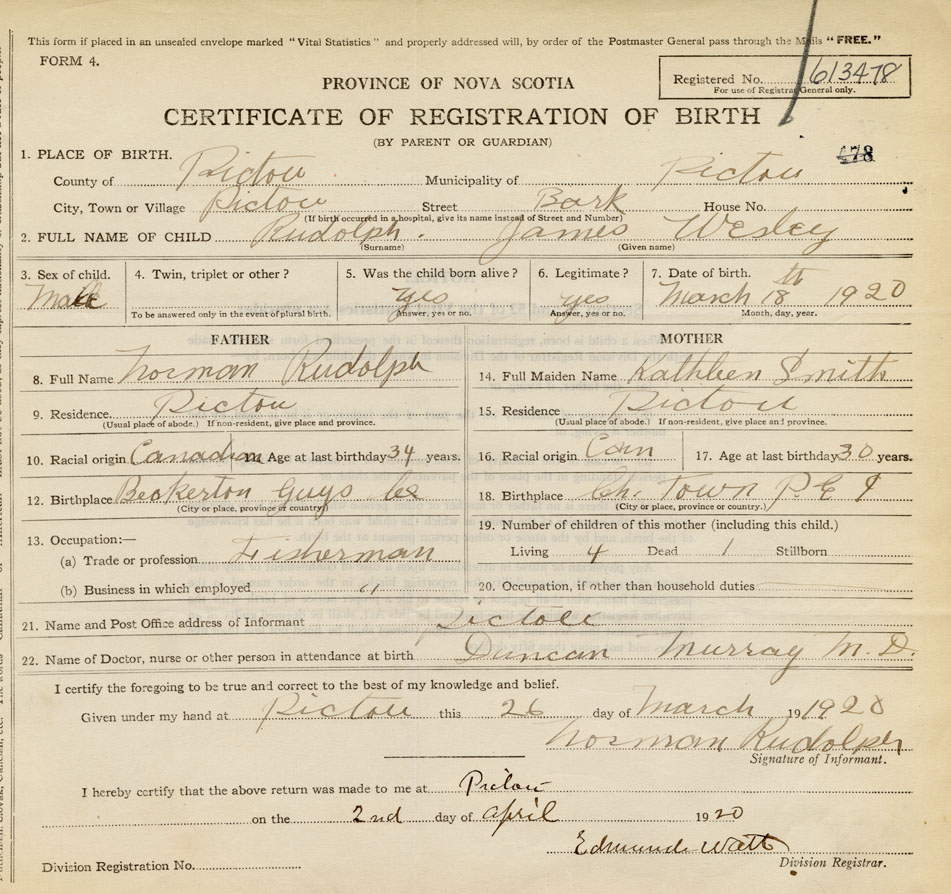 This form if placed in an unsealed envelope marked "Vital Statistics" and properly addressed will, by order of the Postmaster General pass through the Mails "FREE."
FORM 4.
Registered No. 613478
For use of Registrar General only.
PROVINCE OF NOVA SCOTIA
CERTIFICATE OF REGISTRATION OF BIRTH
(BY PARENT OR GUARDIAN)
478
1. PLACE OF BIRTH.
County of Pictou Municipality of Pictou
City, Town or Village Pictou Street Bark House No.
(If birth occurred in a hospital, give its name instead of Street and Number)
2. FULL NAME OF CHILD Rudolph. James Wesley
(Surname) (Given name)
3. Sex of child. 4. Twin, triplet or other? 5. Was the child born alive? 6. Legitimate? 7. Date of birth.
Male yes yes March 18th 1920
To be answered only in the event of plural birth. Answer, yes or no. Answer, yes or no. Month, day, year.
FATHER MOTHER
8. Full Name Norman Rudolph 14. Full Maiden Name Kathleen Smith
9. Residence. Pictou 15. Residence Pictou
(Usual place of abode.) If non-resident, give place and province. (Usual place of abode.) If non-resident, give place and province.
10. Racial origin Canadian 11. Age at last birthday 34 years. 16. Racial origin Can 17. Age at last birthday 30 years.
12. Birthplace Beckerton Guys Co 18. Birthplace Ch. Town P. E I
(City or place, province or country) (City or place, province or country.)
13. Occupation:— 19. Number of children of this mother (including this child.)
(a) Trade or profession Fisherman Living 4 Dead 1 Stillborn
(b) Business in which employed " 20. Occupation, if other than household duties
21. Name and Post Office address of Informant Pictou
22. Name of Doctor, nurse or other person in attendance at birth Duncan Murray M. D.
I certify the foregoing to be true and correct to the best of my knowledge and belief.
Given under my hand at Pictou this 26 day of March 19 1920
Norman Rudolph
Signature of Informant.
I hereby certify that the above return was made to me at Pictou
on the 2nd day of April 19 20
Edmund Watt
Division Registration No. Division Registrar.